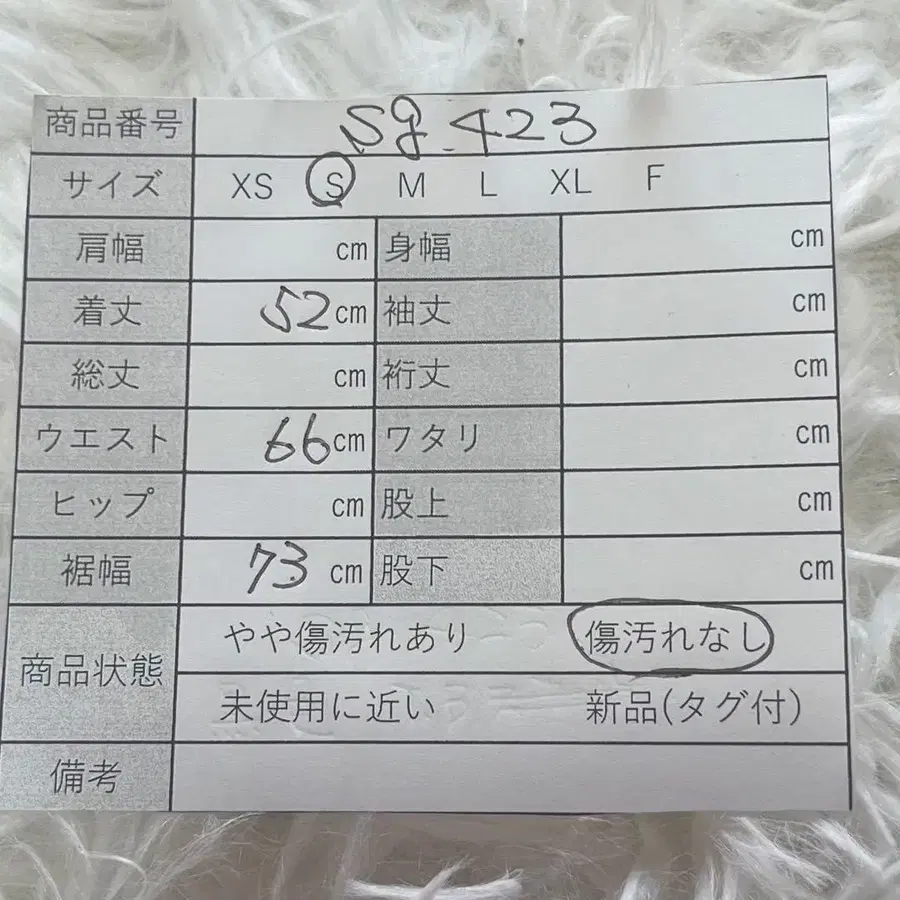 商品番号 sg-423
サイズ XS S M L XL F
肩幅 cm 身幅 cm
着丈 52cm 袖丈 cm
総丈 cm 裄丈 cm
ウエスト 66cm ワタリ cm
ヒップ cm 股上 cm
裾幅 73cm 股下 cm
商品状態 やや傷汚れあり 傷汚れなし
未使用に近い 新品(タグ付)
備考